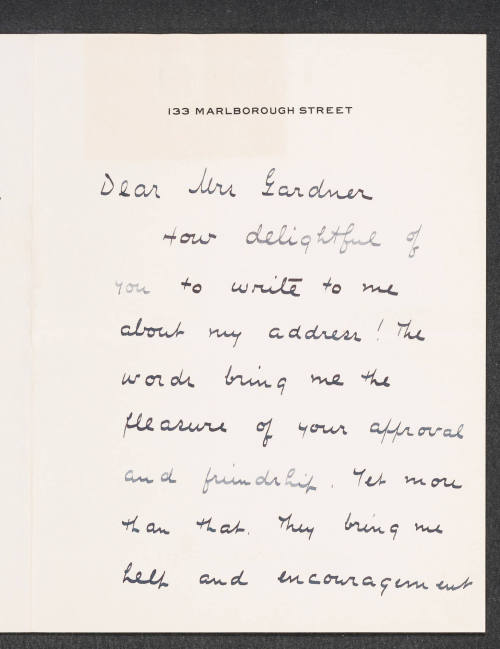 133 MARLBOROUGH STREET
Dear Mrs Gardner
How delightful of
you to write to me
about my address! The
words bring me the
pleasure of your approval
and friendship. Yet more
than that. They bring me
help and encouragement